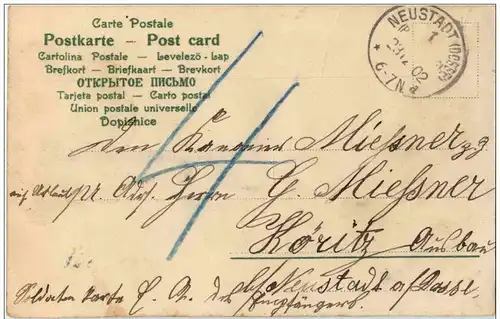 Carte Postale
Postkarte – Post card
Cartolina Postale — Levelező-Lap
Brefkort — Briefkaart — Brevkort
ОТКРЫТОЕ ПИСЬМО
Tarjeta postal — Carto postal
Union postale universelle
Dopisnice
NEUSTADT (DOSSE)
1
02
6-7N
a
4
Den Kanonier Miessner z.Z.
auf Urlaub pr Adr. Herrn G. Miessner
Köritz Ausbau
b/ Neustadt a/Dosse
Soldaten Karte E. A. des Empfängers.